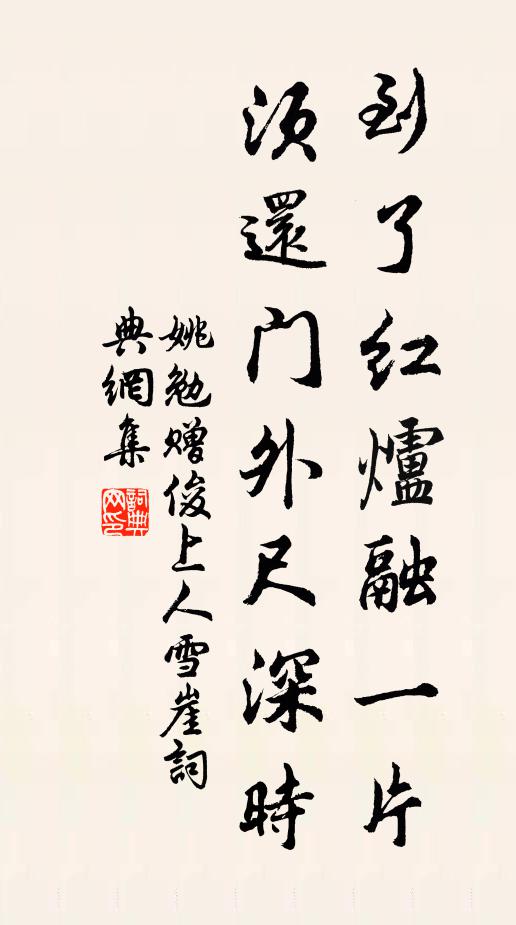 到了紅爐融一片
須還門外尺深時
姚勉贈俊上人雪崖詞
典網集
詞典
网印